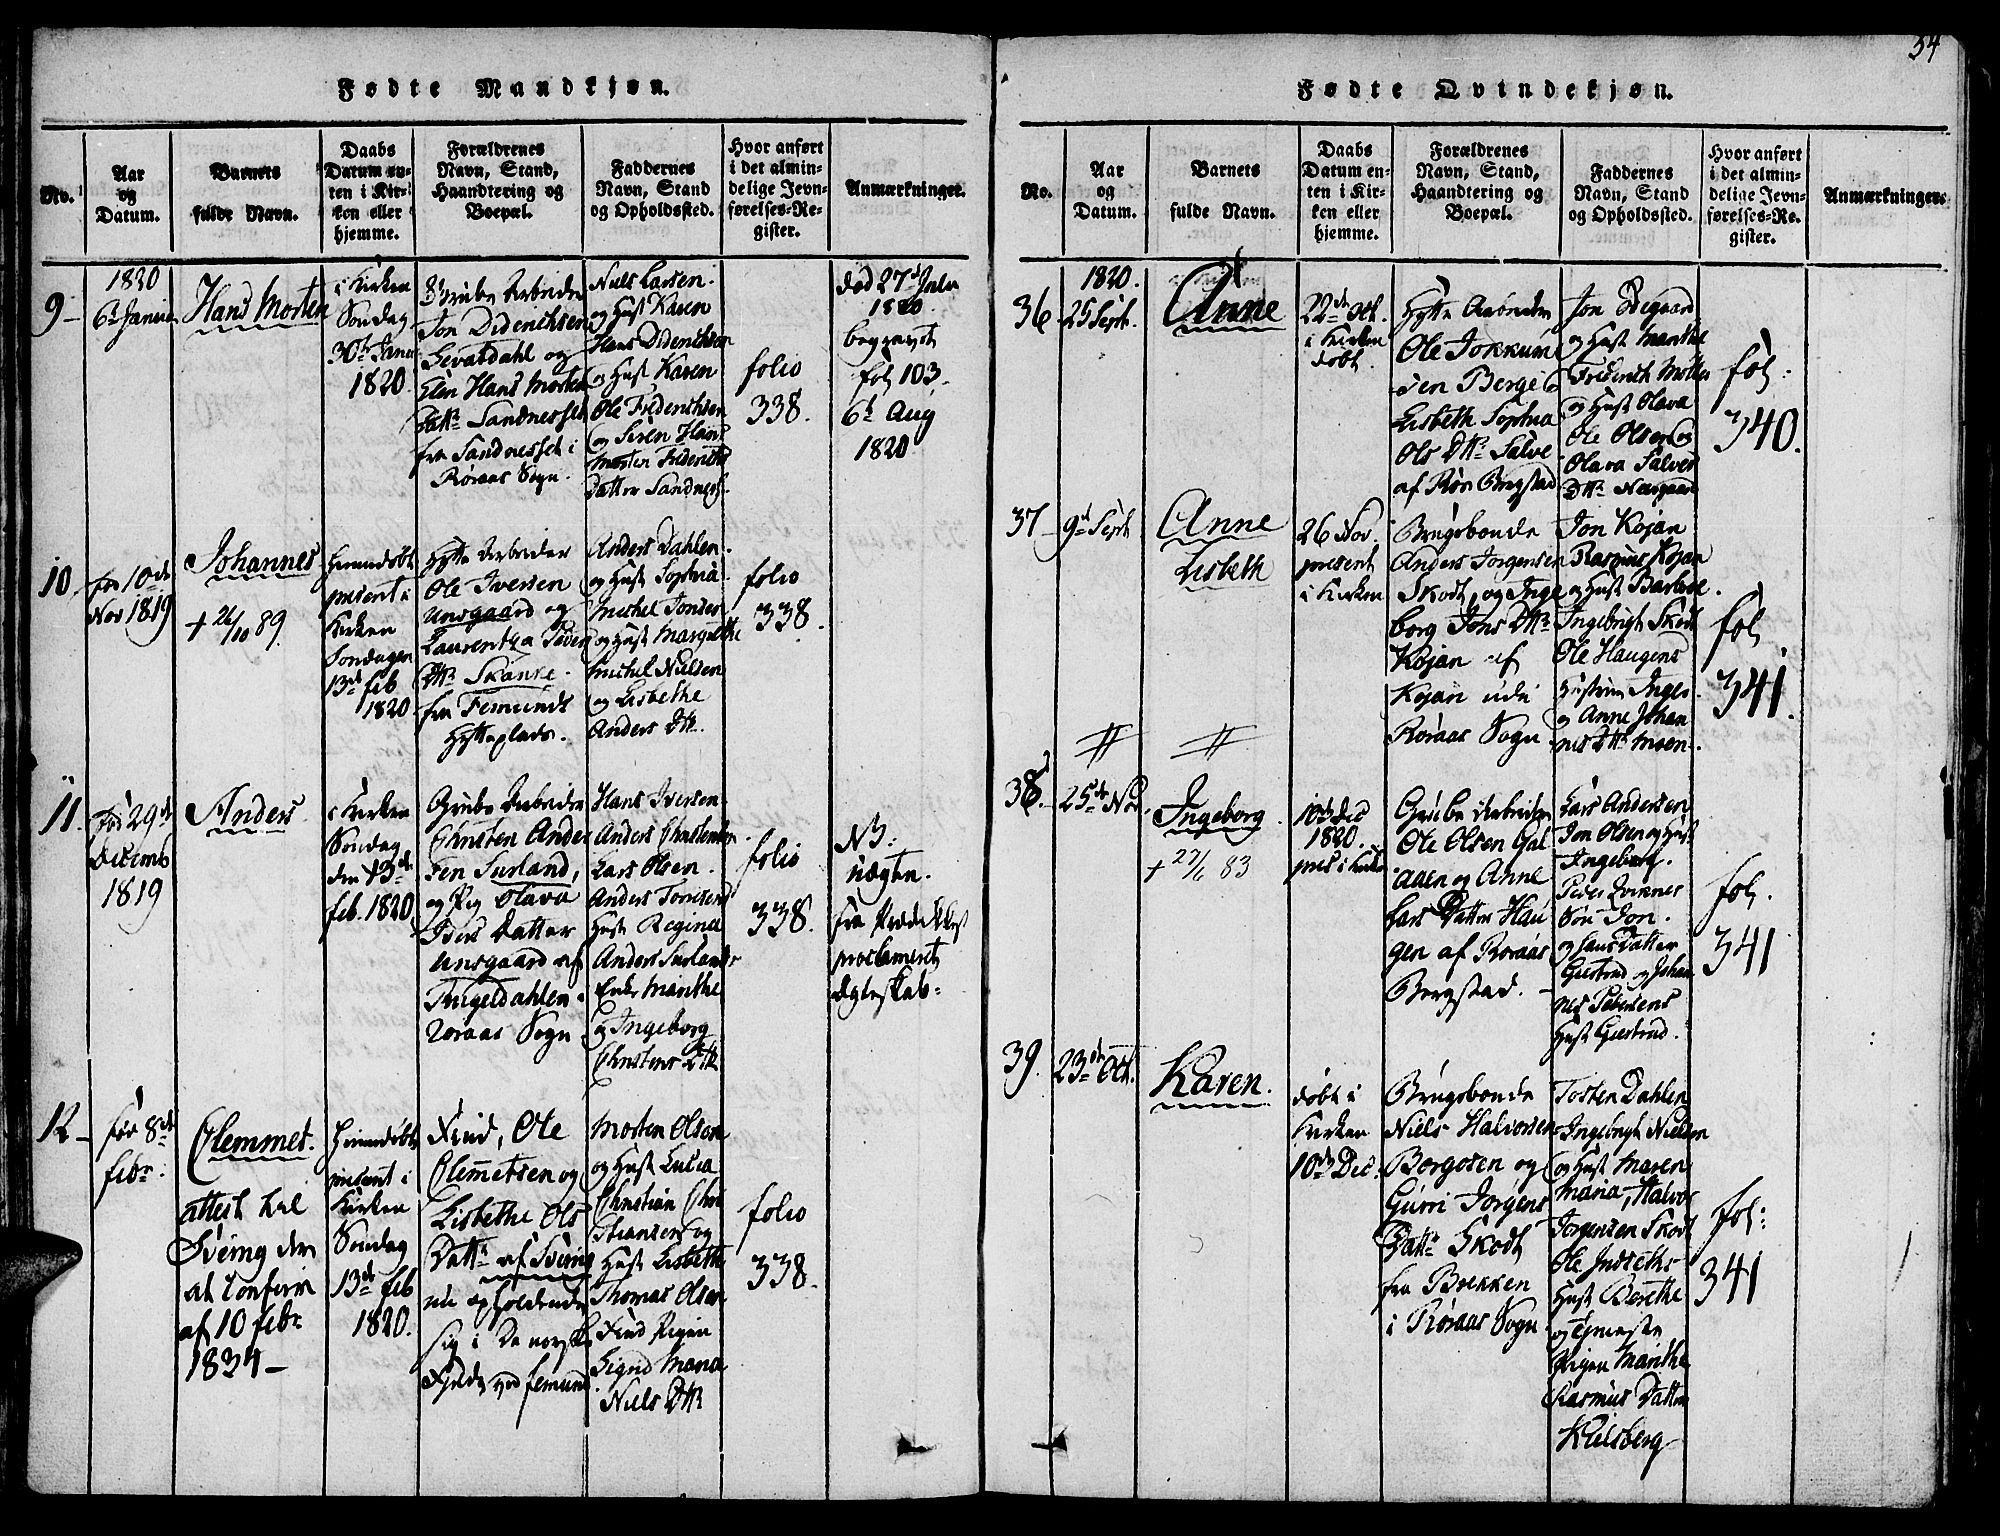 54
Fødte Mandkjøn.
No.
Aar
og
Datum.
Barnets
fulde Navn.
Daabs
Datum en-
ten i Kir-
ken eller
hjemme.
Forældrenes
Navn, Stand,
Haandtering og
Boepæl.
Faddernes
Navn, Stand
og Opholdssted.
Hvor anført
i det almin-
delige Jevn-
førelses-Re-
gister.
Anmærkninger.
9
1820
6t Janua
Hans Morten
i Kirken
Søndag
30t Janu
1820
Grube Arbeider
Jon Diderichsen
og
Elen Hans Morten
Dattr Sandnesset
fra Sandnesset i
Røraas Sogn.
Niels Larsen
og Hust Karen
Hans Diderichsen
og Hust Karen
Ole Friderichsen
og Siren Hans
Morten Friderichs
Datter Sandness.
folio
338.
død 27d Julii
1820
begravet
fol 103.
6t Aug
1820
10
fød 10de
Nov 1819
Johannes
+ 26/10 89.
Hiemdøbt
præsent i
Kirken
Søndagen
13de feb
1820
Hytte Arbeider
Ole Iversen
Unsgaard og
Laurentza Peders
Dttr Skanke
fra Femunds
Hytteplads.
Anders Dahlen
og Hust Sophia
Michel Jonsen
og Hust Margrethe
Michel Nielsen
og Lisbethe
Anders Dtr.
folio
338.
11.
fød 29de
Decemb
1819
Anders
i Kirken
Søndag
den 13de
feb. 1820
Grube Arbeider
Christen Ander
sen Surland,
og Pig Olava
Ivers Datter
Unsgaard af
Røraas Sogn
Hans Iversen
Anders Christensen
Lars Olsen.
Anders Tommesens
Hust Regina
Anders Surlands
Enke Marithe
og Ingeborg
Christens Dtr
folio
338.
NB:
uægten.
fra Prædikkest
proclameret
Ægteskab:
12
fød 8de
febr:
Clemmet.
attest hal
Svering den
at Confirm
af 10 febr
1834
Hiemdøbt
præsent i
Kirken
Søndag
13de feb
1820.
Find, Ole
Clemetsen og
Lisbethe Ols
Dattr af Svering
nu opholdende
sig i De norske
Fjelde ved Femund
Morten Olsen
og Hust Lucia
Christian Chri
stiansen og
Hust Lisbethe
Thomas Olsen
Find Pigen
Sigrid Maria
Niels Dtr
folio
338.
Fødte Qvindekjøn.
No.
Aar
og
Datum.
Barnets
fulde Navn.
Daabs
Datum en-
ten i Kir-
ken eller
hjemme.
Forældrenes
Navn, Stand,
Haandtering og
Boepæl.
Faddernes
Navn, Stand
og Opholdssted.
Hvor anført
i det almin-
delige Jevn-
førelses-Re-
gister.
Anmærkninger.
36
1820.
25 Sept.
Anne
22de Oct.
i Kirken
døbt.
Hytte Arbeider
Ole Jokkum
sen Berg
Lisbeth Sophia
Ols Dttr Salve
af Røra Bergstad
Jon Ødegaard
og Hust Marithe
Friderich Møller
og Hust Olava
Ole Olsen og
Olava Salves
Dttr Næsgaard
fol:
340.
37
9de Sept
Anne
Lisbeth
26 Nov.
præsent
i Kirken
Brugsbonde
Anders Jørgensen
Skodt, og Inge
borg Jons Dttr
Kojan af
Kojan udi
Røraas Sogn
Jon Kojan
Rasmus Kojan
og Hust Barbroe
Ingebrigt Skodt
Ole Haugens
Hustrue Inge
og Anne Johan
nes Dttr Moen.
fol
341.
38
25de Nov
Ingeborg
+ 27/6 83
10de Dec
1820.
præs i Kirken
Grube Arbeider
Ole Olsen Gal
aaen og Anne
Lars Datter Hau
gen af Røraas
Bergstad.
Lars Andersen
Jon Olsen og Hust
Ingeborg.
Peder Qviknes
Søn Jon.
og hans Datter
Giertrud og Johan
nes Pedersens
Hust Giertrud.
fol.
341
39.
23de Oct.
Karen.
døbt i
Kirken
10de Dec.
Brugsbonde
Niels Halvorsen
Borgosen og
Gurri Jørgens
Dattr Skodt
fra Brekken
i Røraas Sogn
Tosten Dahlen
Ingebrigt Nielsen
og Hust Maren
Maria, Halvor
Jørgensen Skodt
Ole Indseths
Hust Berethe
og Tieneste
Pigen Marithe
Rasmus Datter
Kulsberg
fol:
341